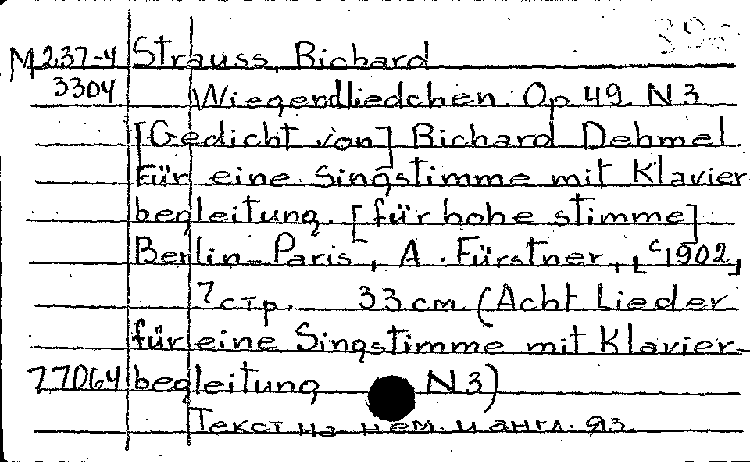 M 237-4 Strauss, Richard
3304 Wiegendliedchen. Op 49. N 3
[Gedicht von] Richard Dehmel
Für eine Singstimme mit Klavier-
begleitung. [für hohe stimme]
Berlin-Paris, A. Fürstner, [c1902]
7 стр. 33 cm. (Acht Lieder
für eine Singstimme mit Klavier-
77064 begleitung N 3)
Текст на нем. и англ. яз.